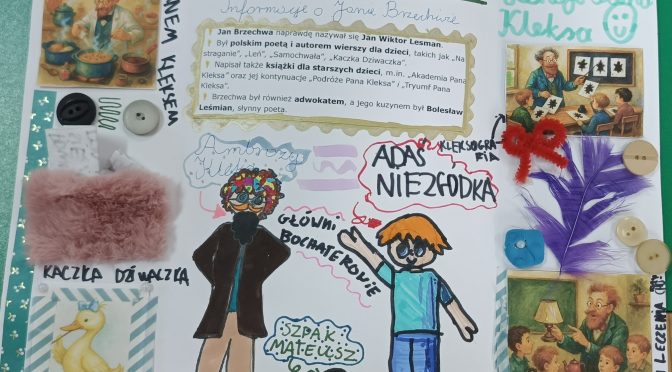 Informacje o Janie Brzechwie
Jan Brzechwa naprawdę nazywał się Jan Wiktor Lesman.
Był polskim poetą i autorem wierszy dla dzieci, takich jak „Na
straganie”, „Leń”, „Samochwała”, „Kaczka Dziwaczka”.
Napisał także książki dla starszych dzieci, m.in. „Akademia Pana
Kleksa” oraz jej kontynuacje „Podróże Pana Kleksa” i „Tryumf Pana
Kleksa”.
Brzechwa był również adwokatem, a jego kuzynem był Bolesław
Leśmian, słynny poeta.
KLEKSEM
Kleksa
KLEKSOGRA-
FIA
Ambroży
Kleks
ADAŚ
NIEZGÓDKA
GŁÓWNI
BOCHATEROWIE
KACZKA DZIWACZKA
SZPAK
MATEUSZ